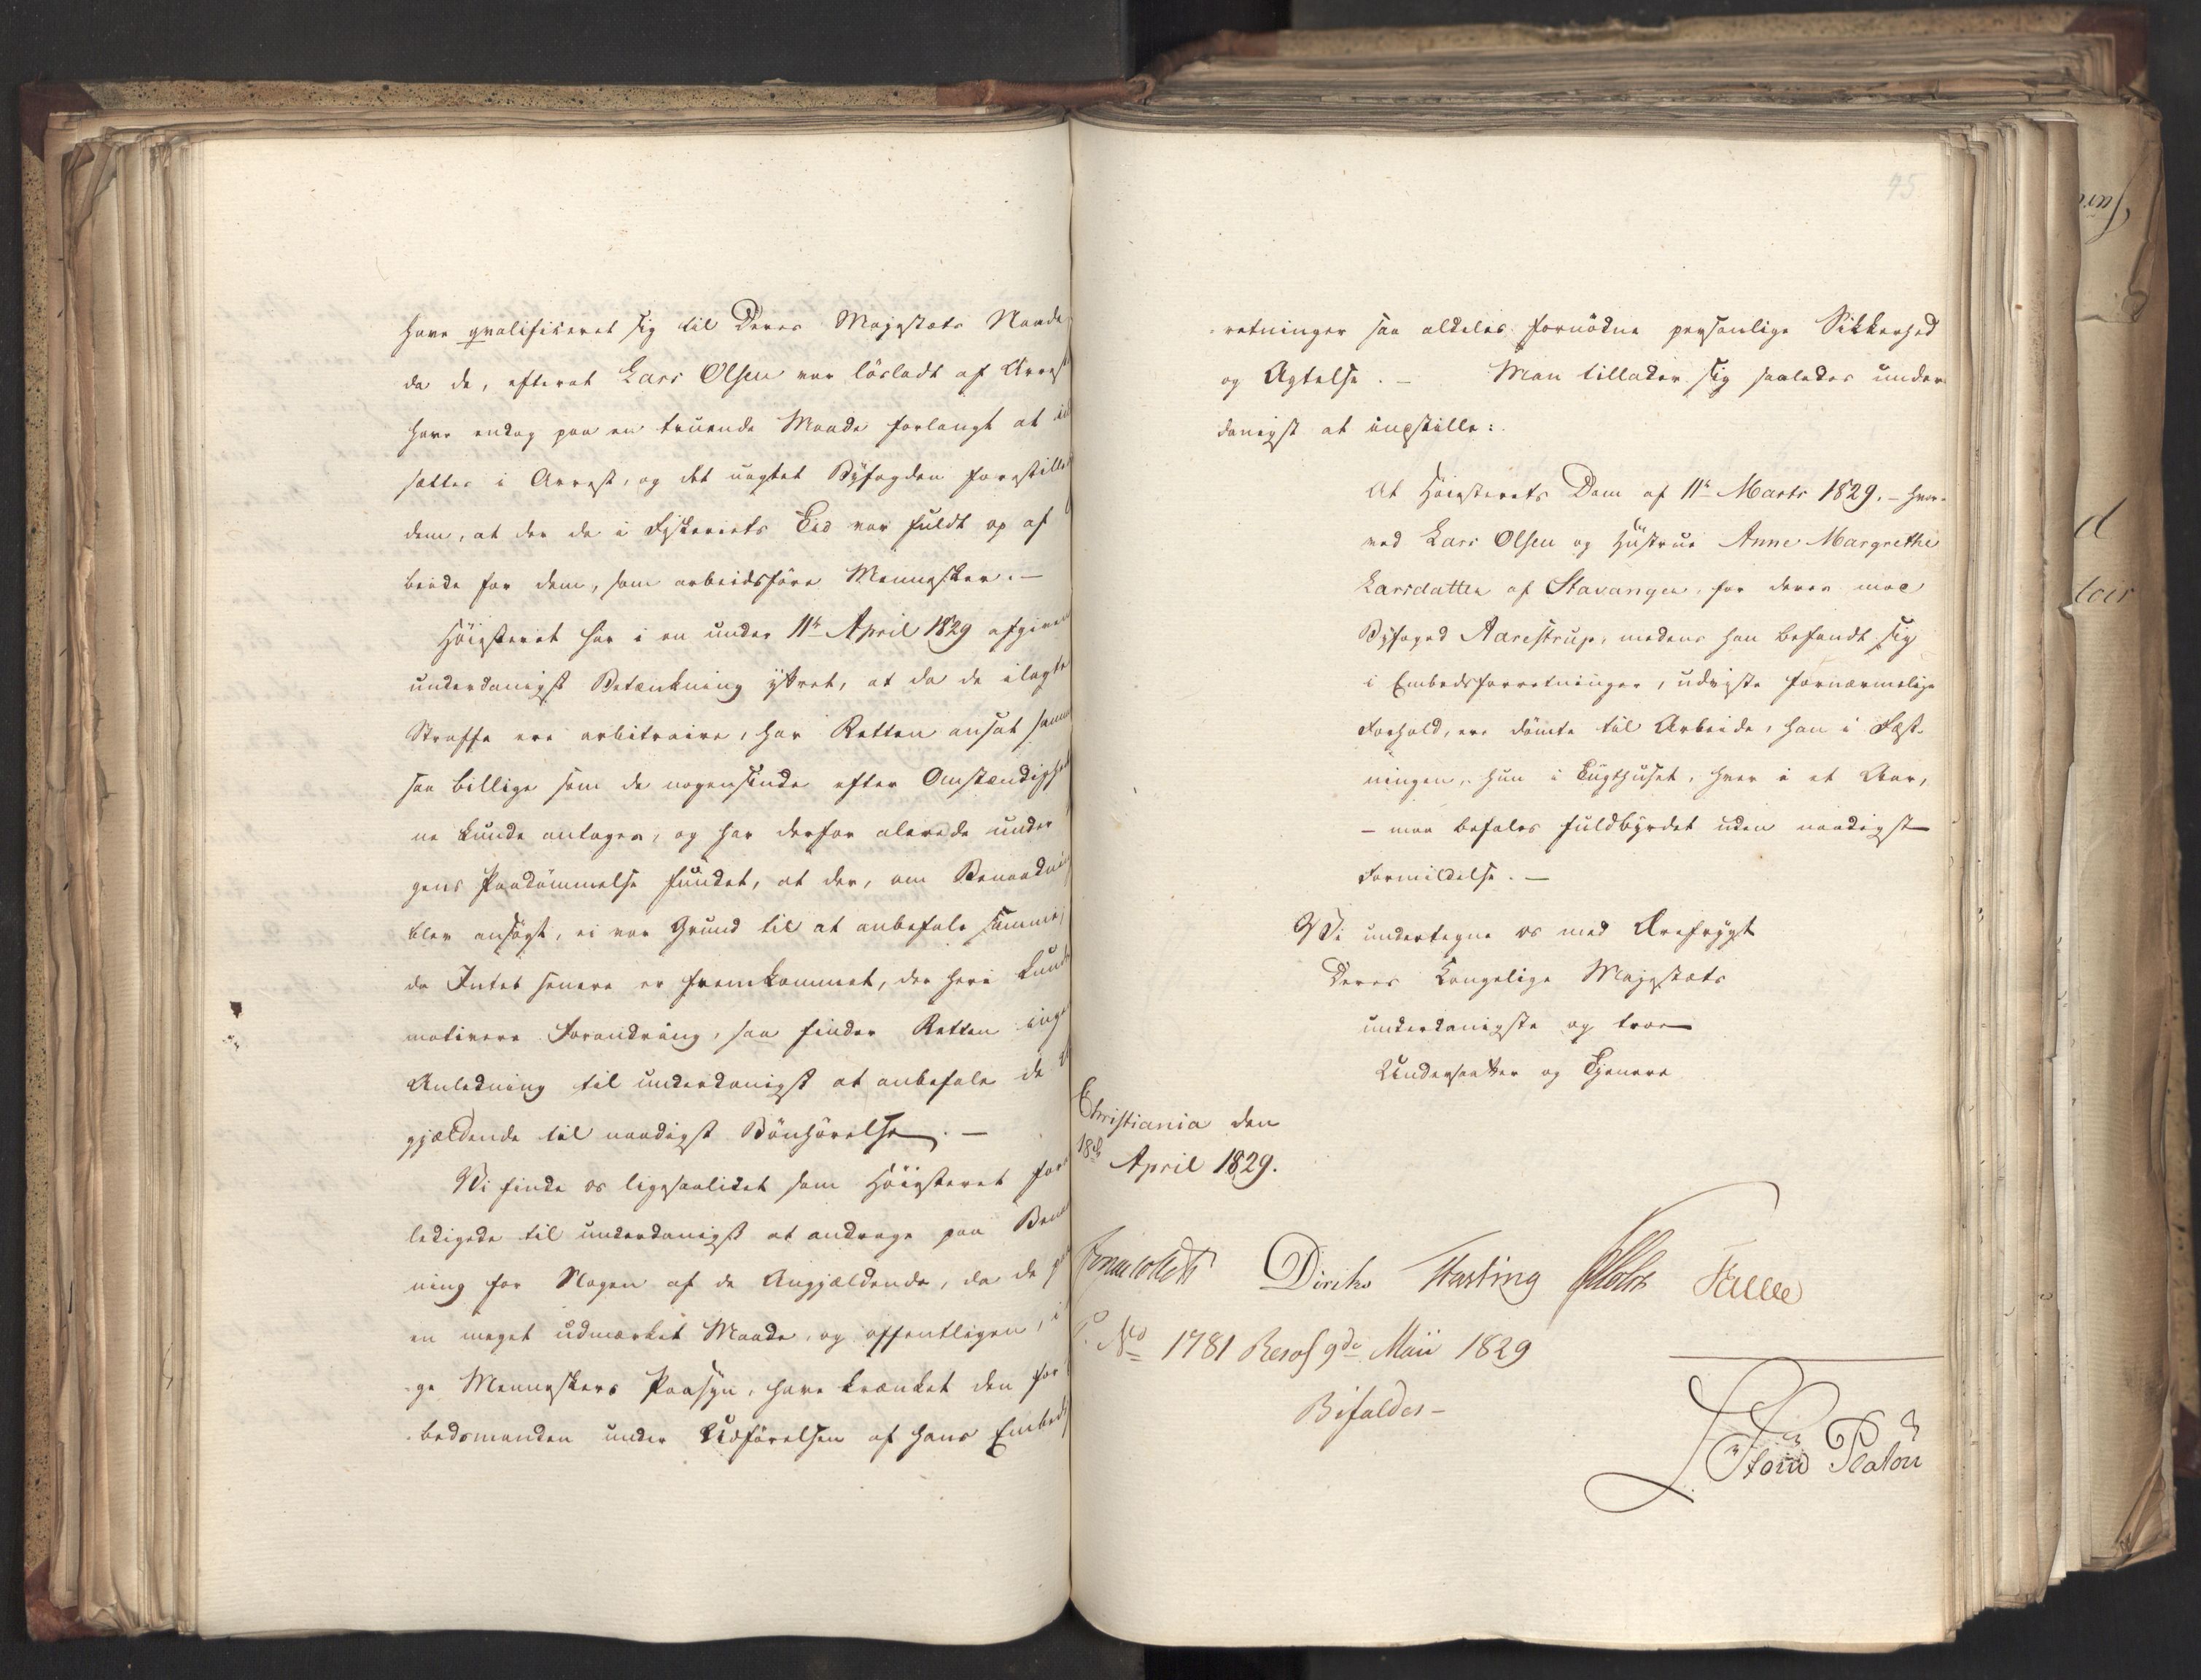 have qvalificeret sig til Deres Majestæts Naade,
da de, efterat Lars Olsen var lösladt af Arrest
have endog paa en truende Maade forlangt at ind
sættes i Arrest, og det uagtet Byfogden forestillede
dem, at der da i Fiskeriets Tid var fuldt op af
beide for dem, som arbeidsföre Mennesker. —
Höiesteret har i en under 11te April 1829 afgiven
underdanigst Betænkning yttret, at da de ilagte
Straffe ere arbitraire, har Retten ansat samme
saa billige som de nogensinde efter Omstændighed
ne kunde antages, og har derfor allerede under
gens Paadömmelse fundet, at der, om Benaadning
blev ansögt, ei var Grund til at anbefale samme,
da Intet senere er fremkommet, der heri kunde
motivere Forandring, saa finder Retten ingen
Anledning til underdanigst at anbefale de
gjældende til naadigst Bönhörelse. —
Vi finde os ligesaalidet som Höiesteret for
ledigede til underdanigst at andrage paa Benaad
ning for Nogen af de Angjældende, da de paa
en meget udmærket Maade, og offentligen, i
ge Menneskers Paasyn, have krænket den for
bedsmanden under Udförelsen af hans Embeds
45
retninger saa aldeles fornödne personlige Sikkerhed
og Agtelse. — Man tillader sig saaledes under
danigst at indstille:
At Höiesterets Dom af 11te Marts 1829. — hvor
ved Lars Olsen og Hustrue Anne Margrethe
Larsdatter af Stavanger, for deres mod
Byfoged Aarestrup, medens han befandt sig
i Embedsforretninger, udviste fornærmelige
Forhold, ere dömte til Arbeide, han i Fæst-
ningen, hun i Tugthuset, hver i et Aar,
— maa befales fuldbyrdet uden naadigst
Formildelse. —
Vi undertegne os med Ærefrygt
Deres Kongelige Majestæts
underdanigste og troe
Undersaatter og Tjenere
Christiania den
18de April 1829.
Jonas Collett Diriks Hasting Holst Falbe
P. No 1781 Resol 9de Maii 1829
Bifaldes —
Platou